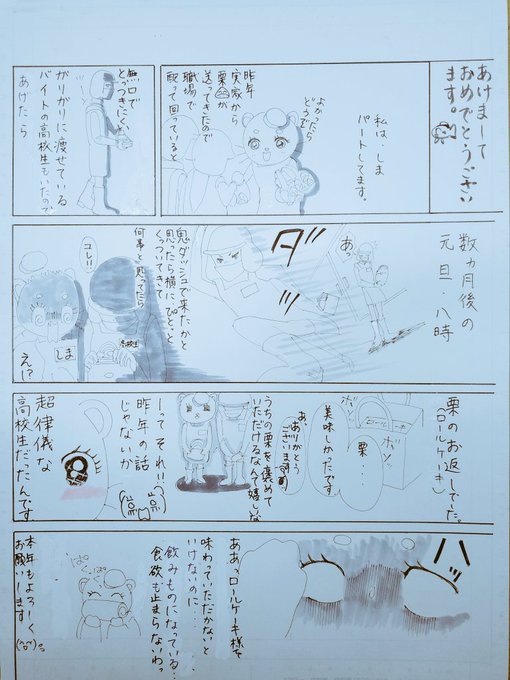 あけまして
おめでとうござい
ます。
私は、しま
パートしてます。
よかったら
どうぞ
昨年
実家から
栗🌰が
送ってきたので
職場で
配って回っていると
無口で
とっつきにくい、
がりがりに痩せている
バイトの高校生もいたので
あげたら
数ヵ月後の
元旦・八時
あっ
ダッ
鬼ダッシュで来たかと
思ったら横にぴとっと
くっついてきて
何事と思ってたら
コレ!!
高校生
しま
え!?
栗のお返しでした。
(ロールケーキ)
ロールケーキ
ボソッ
ボソッ
栗…
美味しかったです
あ
ありがとう
ございますっ
うちの栗を褒めて
いただけるなんて嬉しいな
ーってそれ!!
昨年の話
じゃないか
超律儀な
高校生だったんです
ハッ
ああっロールケーキ様で
味わっていただかないと
いけないのに…
飲みものになっている…
食欲も止まらないわっ
ぱく
ぱく
本年もよろしく
お願いします